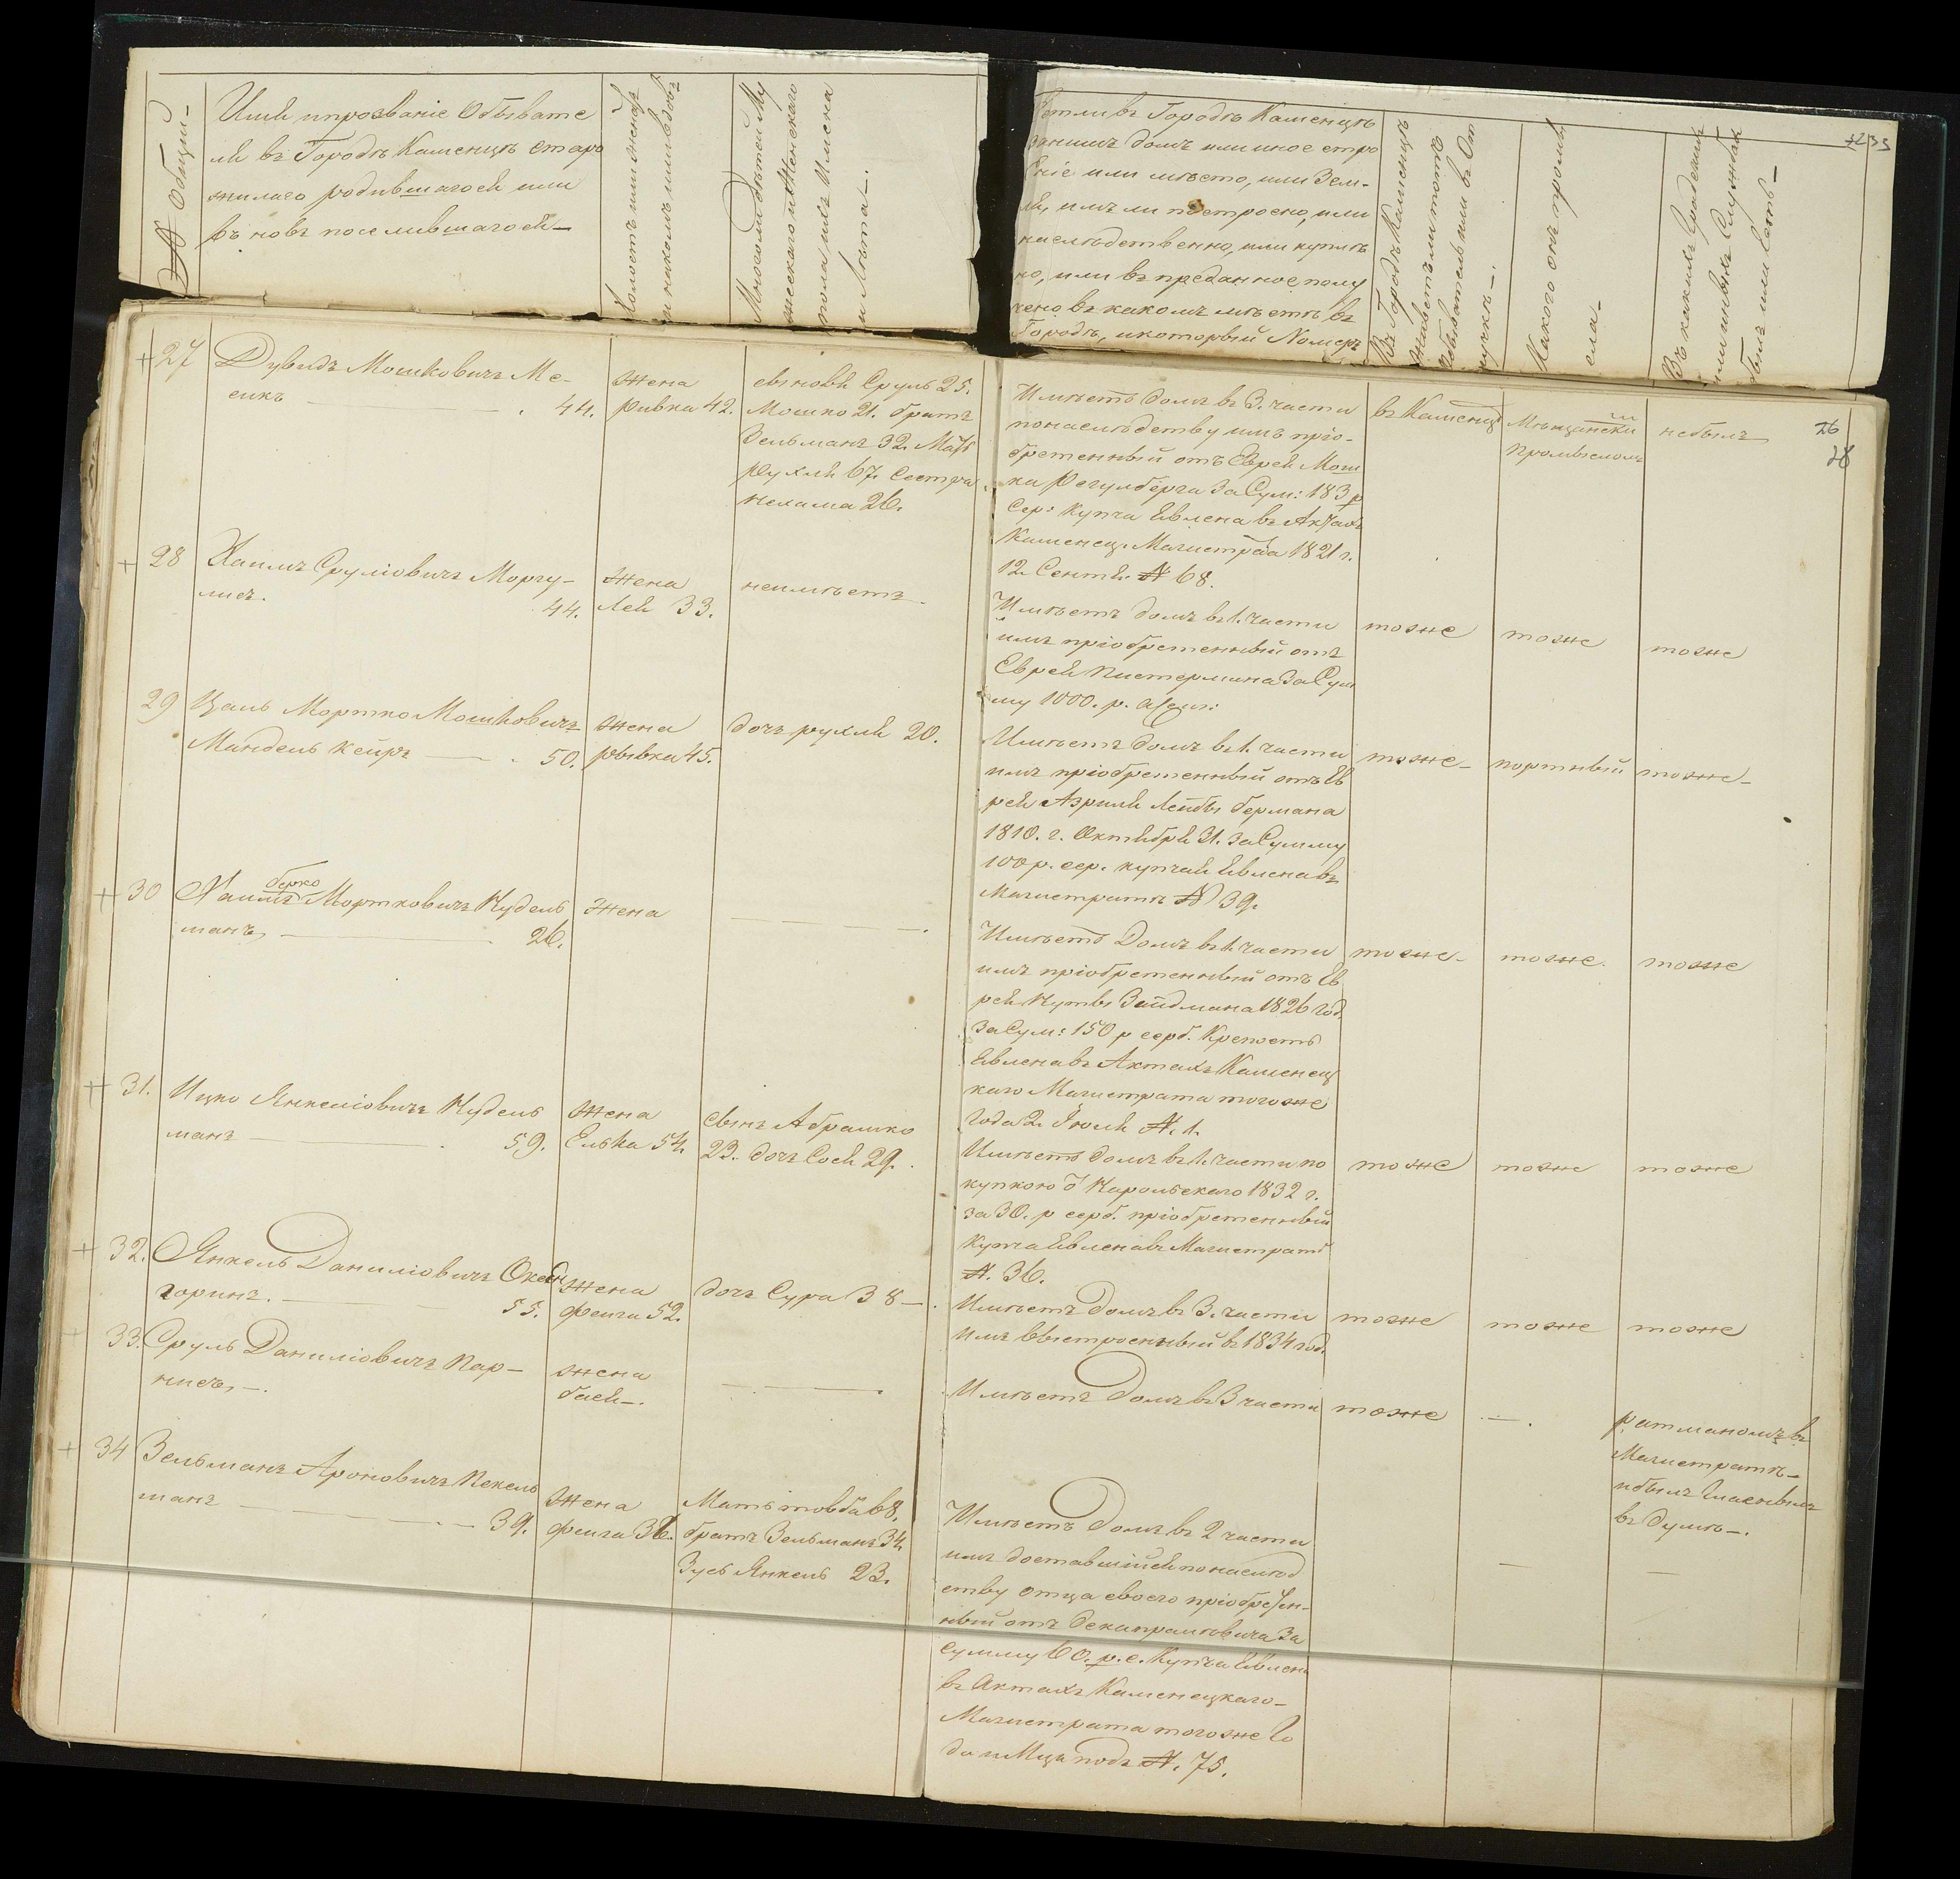 № Общий –
Имя и прозвание Обывате
ля въ Городѣ Каменцѣ старо
жилаго родившагося или
въ новъ поселившагося –
Холостъ или женатъ
и на комъ или вдовъ
Много ли дѣтей Му
жескаго и Женскаго
пола, ихъ Имена
и Лѣта –.
Естли въ Городѣ Каменцѣ
за нимъ домъ или иное стро
еніе или мѣсто, или Зем-
ля, имъ ли построено, или
наслѣдственно, или куплѣ
но, или въ преданное полу
чено въ какомъ мѣстѣ въ
Городѣ, и который Номеръ
Въ Городѣ Каменцѣ
живетъ ли тотъ
обыватель или въ От
лучкѣ –.
Какого онъ промы
сла –
Въ какихъ Городскихъ
или иныхъ Службахъ
былъ или есть –
+ 27
Дувидъ Мошковичъ Ме-
сикъ 44.
жена
ривка 42.
сыновя Сруль 25.
Мошко 21. братъ
Зельманъ 32. Мать
рухля 67. сестра
нехама 26.
Имѣетъ домъ въ 3. части
по наслѣдству имъ пріо-
бретенный отъ Еврея Мош
ка Регулберга за Сум: 183 р
сер: Купча Явлена въ Актахъ
Каменец. Магистрата 1821 г.
12. Сентя. № 68.
въ Каменцѣ
Мѣщански
промысломъ
небылъ
26
28
+ 28
Хаимъ Сруліовичъ Моргу-
лисъ. 44.
Жена
Лея 33.
неимѣетъ.
Имѣетъ домъ въ 1. части
имъ пріобретенный отъ
Еврея Пистермана за Сум
му 1000. р. ассиг:
тоже
тоже
тоже
29
Цаль Мортко Мошковичъ
Мандель кейръ 50.
жена
рывка 45.
дочъ рухля 20.
Имѣетъ домъ въ 1. части
имъ пріобретенный отъ Ев
рея Азриля Лейбы бермана
1810. г. Октября 31. за Сумму
100 р. сер. купчая Явлена въ
Магистратѣ № 39.
тоже –
портный
тоже –
+ 30
берко
Хаимъ Мортковичъ Кудель
манъ, 26.
Жена
Имѣетъ Домъ въ 1. части
имъ пріобретенный отъ Ев
рея Нуты Зайдмана 1826 год.
за Сум: 150 р сереб. Крепость
Явлена въ Актахъ Каменец
каго Магистрата того же
Года 2. Іюля №. 1.
тоже –
тоже.
тоже
+ 31.
Ицко Янкеліовичъ Кудель
манъ 59.
Жена
Елька 54.
сынъ Абрамко
23. дочъ Сося 29.
Имѣетъ домъ въ 1. части по
купкою от Карольскаго 1832 г.
за 30. р сереб. пріобретенный
купча Явлена въ Магистратѣ
№. 36.
тоже
тоже
тоже
+ 32.
Янкель Даниліовичъ Оксен
горинъ. 55.
жена
феига 52.
дочъ Сура 38 –.
Имѣетъ домъ въ 3. части
имъ выстроенный въ 1834 год.
тоже
тоже
тоже
33.
Сруль Даниліовичъ Пар-
несъ, –.
жена
бася –.
Имѣетъ Домъ въ 3 части
тоже
–.
ратманомъ въ
Магистратѣ –
и былъ гласнымъ
въ думѣ –.
+ 34
Зельманъ Ароновичъ Пекель
манъ 39.
Жена
феига 36.
Мать товба 68.
братъ Зельманъ 34.
Зусь Янкель 23.
Имѣетъ Домъ въ 2 части
имъ доставшійся по наслѣд
ству отца своего пріобретен-
ный отъ за
сумму 60. р. с. Купча Явлена
въ Актахъ Каменецкаго –
Магистрата того же Го
да и Мца подъ №. 75.
–
–